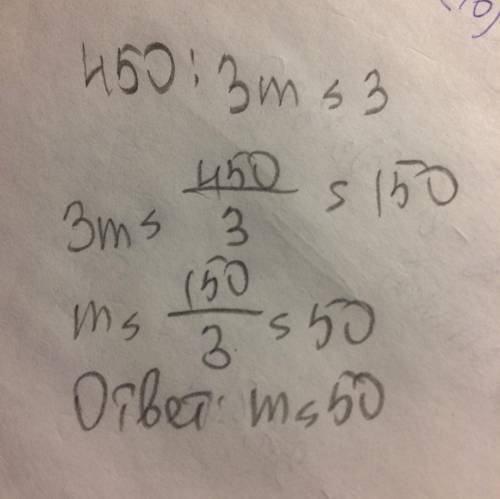 450 : 3m = 3
3m = 450/3 = 150
m = 150/3 = 50
Ответ: m = 50